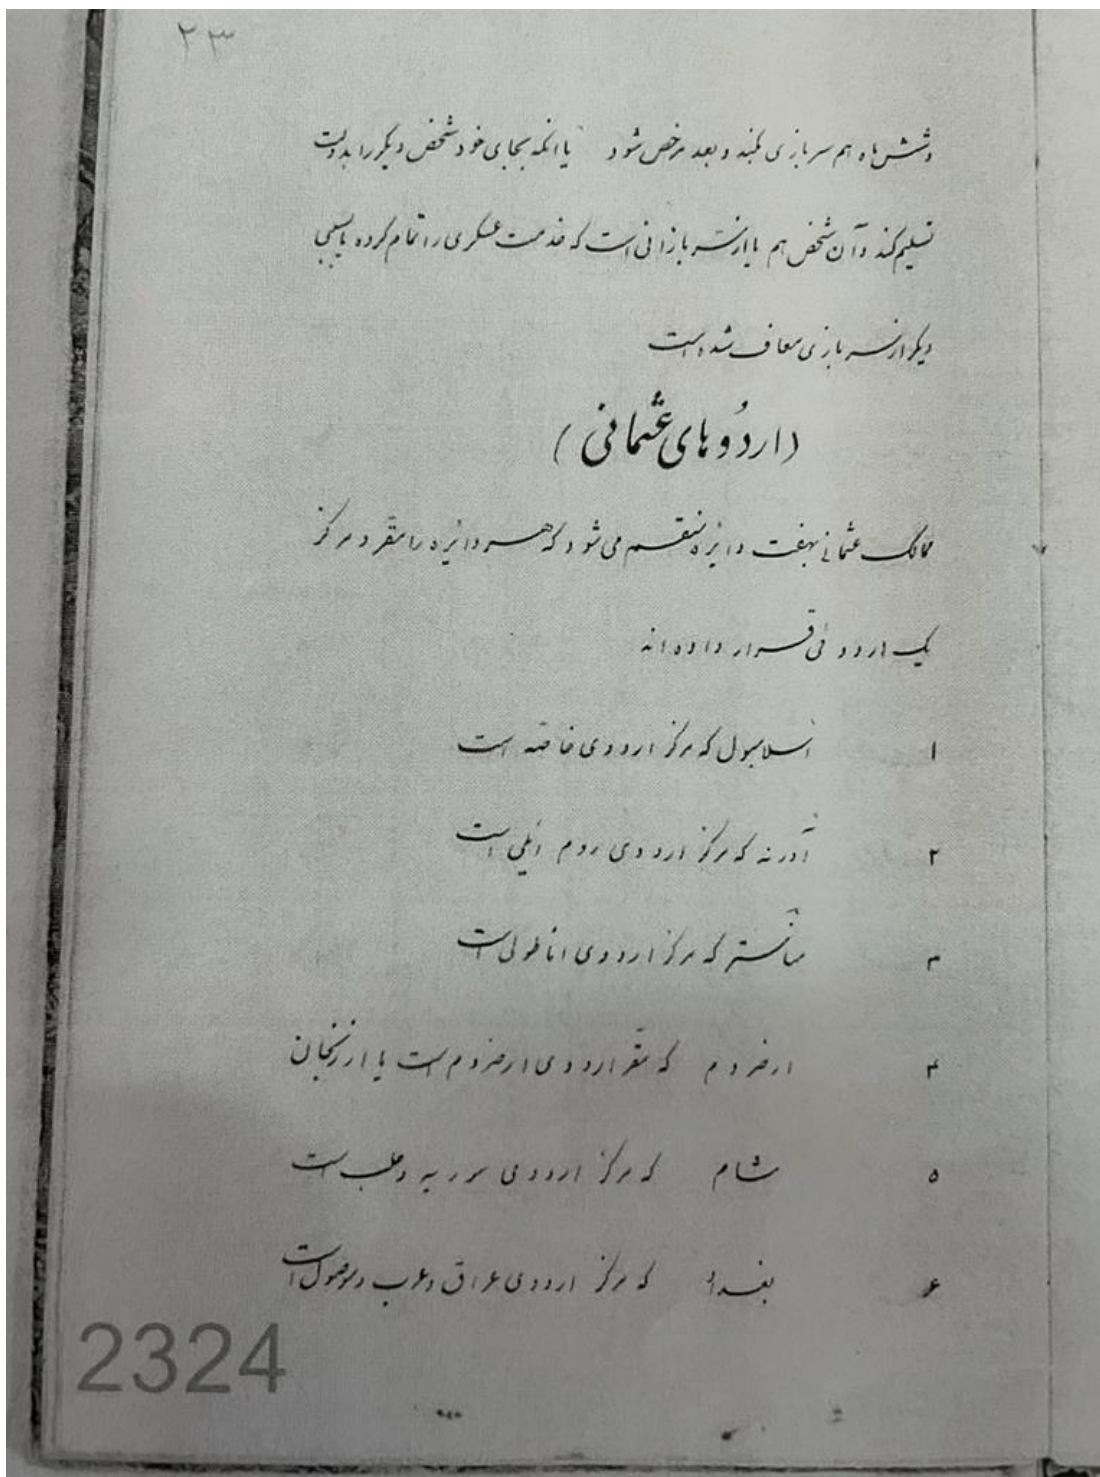 ۲۳
و شش ماه هم سربازی بکند و بعد مرخص شود یا انکه بجای خود شخص دیگر را بدولت
تسلیم کند و آن شخص هم یا از سربازانی است که خدمت عسکری را تمام کرده یا بسببی
دیگر از سربازی معاف شده است
(اردُوهای عثمانی)
ممالک عثمانی بهفت دایره منقسم می شود که هر دایره را مقر و مرکز
یک اردوئی قرار داده اند
۱ اسلامبول که مرکز اردوی خاصه است
۲ آدرنه که مرکز اردوی روم ایلی است
۳ مناستر که مرکز اردوی اناطولی است
۴ ارضروم که مقر اردوی ارضروم است یا ارزنجان
۵ شام که مرکز اردوی سوریه و حلب است
۶ بغداد که مرکز اردوی عراق و عرب و موصول است
2324